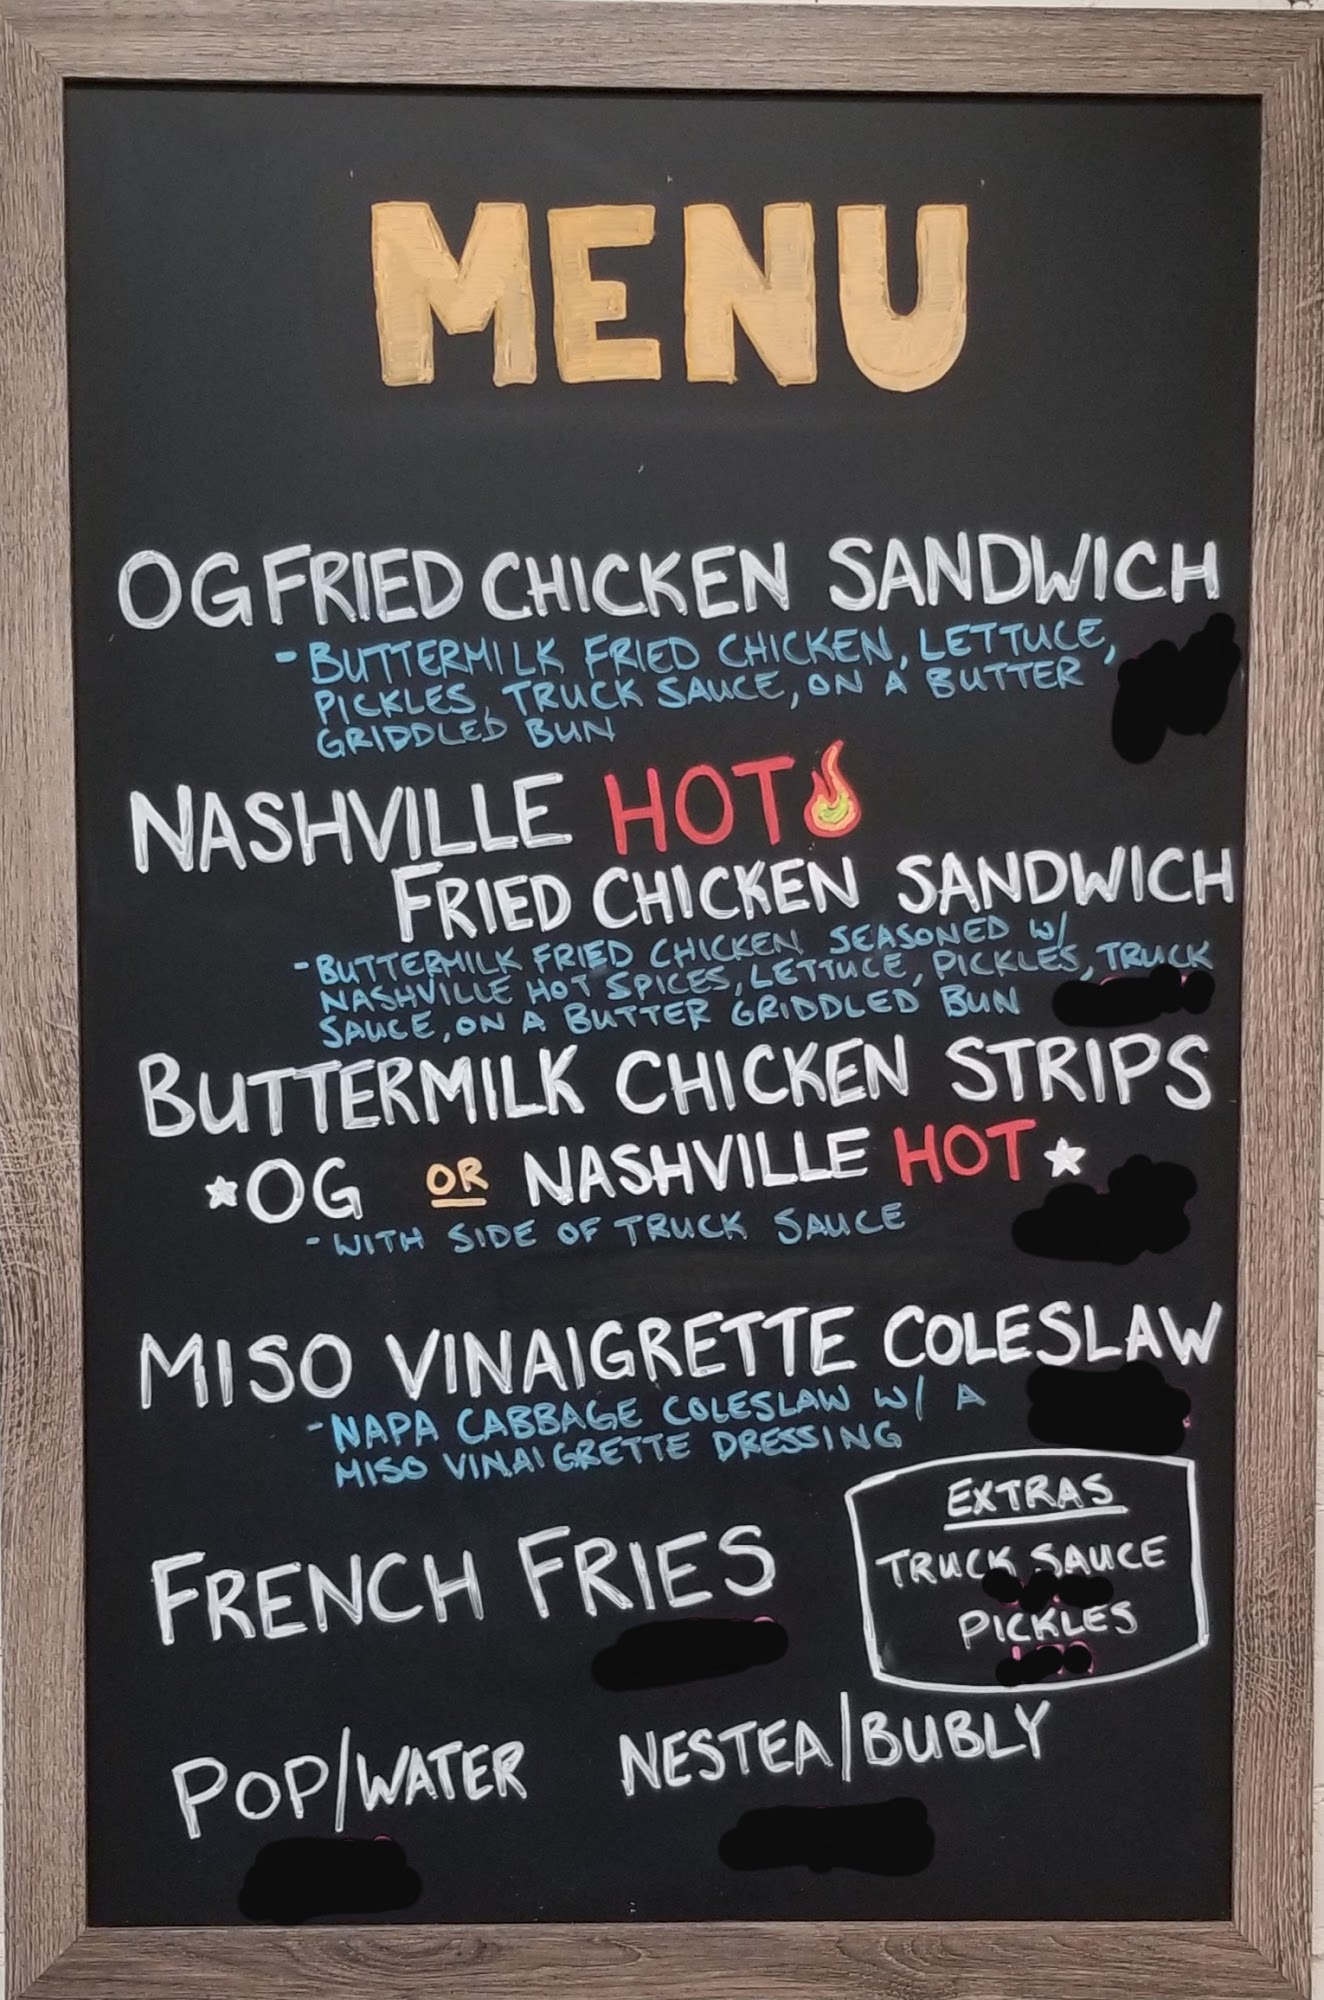 MENU
OG FRIED CHICKEN SANDWICH
- BUTTERMILK FRIED CHICKEN, LETTUCE,
PICKLES, TRUCK SAUCE, ON A BUTTER
GRIDDLED BUN
NASHVILLE HOT
FRIED CHICKEN SANDWICH
- BUTTERMILK FRIED CHICKEN SEASONED W/
NASHVILLE HOT SPICES, LETTUCE, PICKLES, TRUCK
SAUCE, ON A BUTTER GRIDDLED BUN
BUTTERMILK CHICKEN STRIPS
*OG OR NASHVILLE HOT*
- WITH SIDE OF TRUCK SAUCE
MISO VINAIGRETTE COLESLAW
- NAPA CABBAGE COLESLAW W/ A
MISO VINAIGRETTE DRESSING
FRENCH FRIES
EXTRAS
TRUCK SAUCE
PICKLES
POP/WATER NESTEA/BUBLY